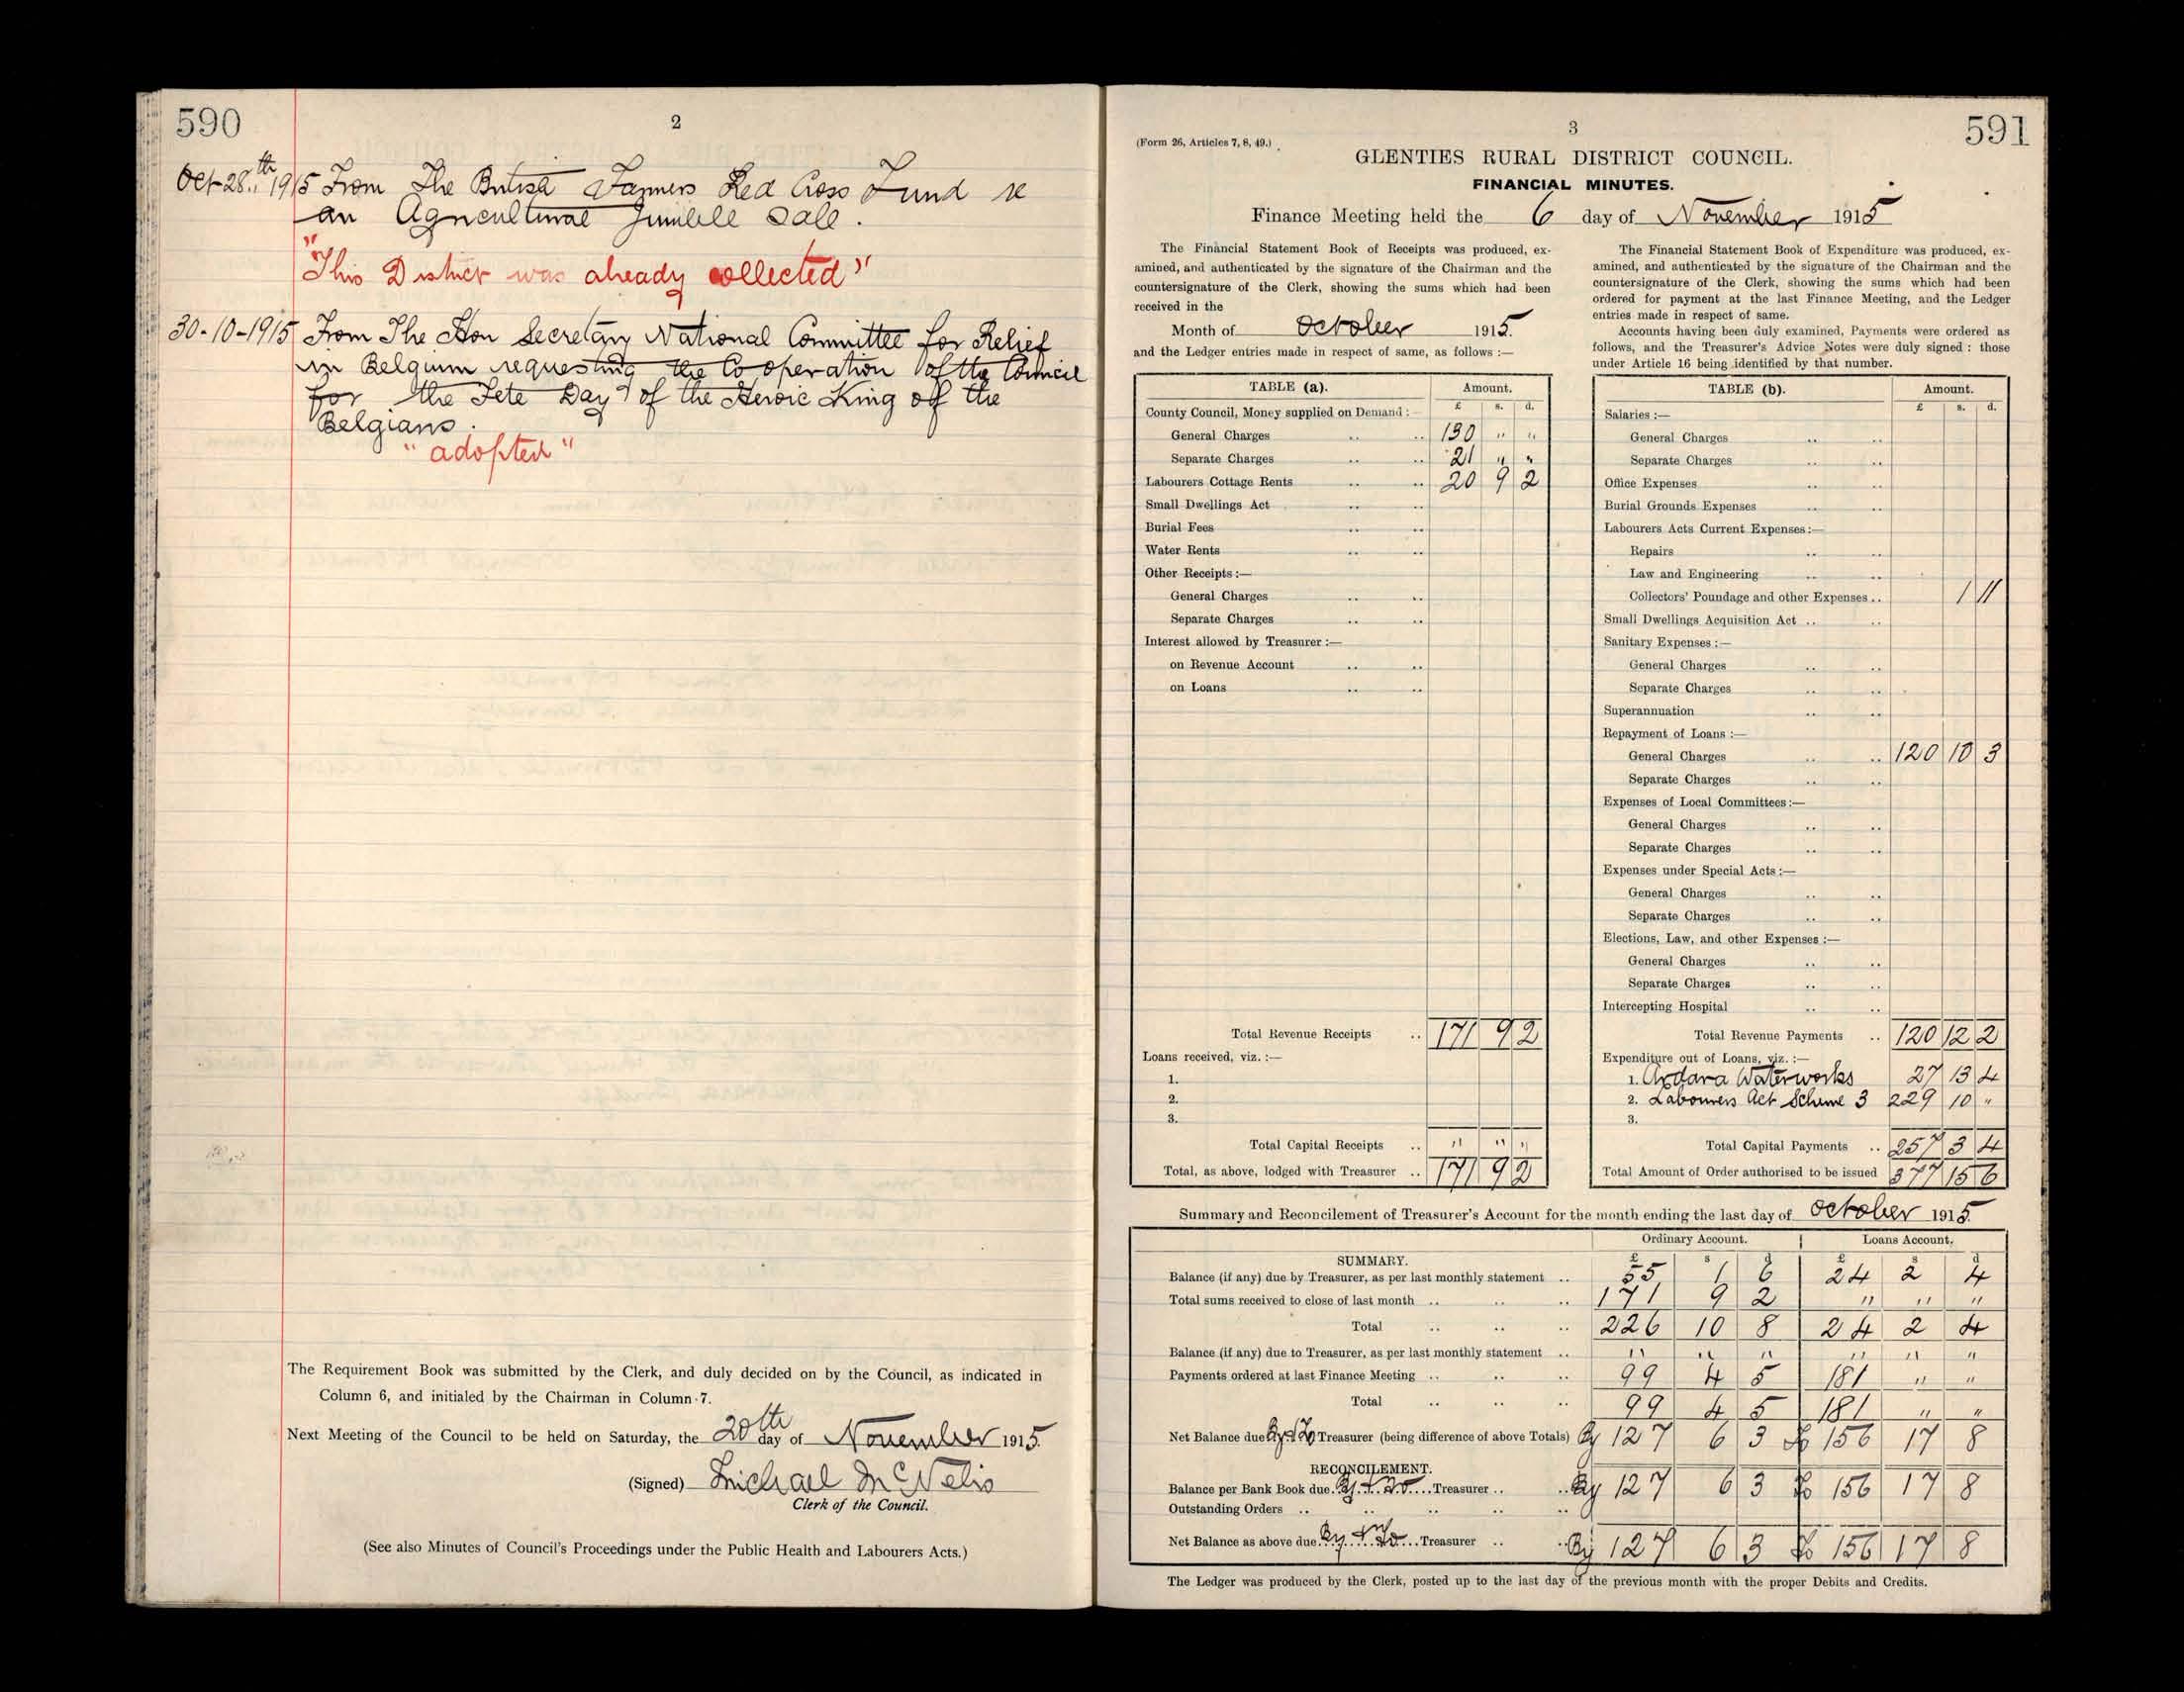 590
2
Oct-28.th 1915 From The British Farmers Red Cross Fund re
an Agricultural Jumble Sale.
"This District was already collected"
30-10-1915 From The Hon Secretary National Committee for Relief
in Belgium requesting the Co operation of the Council
for the Fete Day of the Heroic King of the
Belgians.
"adopted"
The Requirement Book was submitted by the Clerk, and duly decided on by the Council, as indicated in
Column 6, and initialed by the Chairman in Column 7.
Next Meeting of the Council to be held on Saturday, the 20th day of November 1915.
(Signed) Michael McNelis
Clerk of the Council.
(See also Minutes of Council's Proceedings under the Public Health and Labourers Acts.)
3
591
(Form 26, Articles 7, 8, 49.)
GLENTIES RURAL DISTRICT COUNCIL.
FINANCIAL MINUTES.
Finance Meeting held the 6 day of November 1915
The Financial Statement Book of Receipts was produced, ex-
amined, and authenticated by the signature of the Chairman and the
countersignature of the Clerk, showing the sums which had been
received in the
Month of October 1915.
and the Ledger entries made in respect of same, as follows :—
TABLE (a). Amount.
£ s. d.
County Council, Money supplied on Demand :
General Charges .. .. 130 " "
Separate Charges .. .. 21 " "
Labourers Cottage Rents .. .. 20 9 2
Small Dwellings Act .. ..
Burial Fees .. ..
Water Rents .. ..
Other Receipts :—
General Charges .. ..
Separate Charges .. ..
Interest allowed by Treasurer :—
on Revenue Account .. ..
on Loans .. ..
Total Revenue Receipts .. 171 9 2
Loans received, viz. :—
1.
2.
3.
Total Capital Receipts .. " " "
Total, as above, lodged with Treasurer .. 171 9 2
The Financial Statement Book of Expenditure was produced, ex-
amined, and authenticated by the signature of the Chairman and the
countersignature of the Clerk, showing the sums which had been
ordered for payment at the last Finance Meeting, and the Ledger
entries made in respect of same.
Accounts having been duly examined, Payments were ordered as
follows, and the Treasurer's Advice Notes were duly signed : those
under Article 16 being identified by that number.
TABLE (b). Amount.
£ s. d.
Salaries :—
General Charges .. ..
Separate Charges .. ..
Office Expenses .. ..
Burial Grounds Expenses .. ..
Labourers Acts Current Expenses :—
Repairs .. ..
Law and Engineering .. ..
Collectors' Poundage and other Expenses .. 1 11
Small Dwellings Acquisition Act .. ..
Sanitary Expenses :—
General Charges .. ..
Separate Charges .. ..
Superannuation .. ..
Repayment of Loans :—
General Charges .. .. 120 10 3
Separate Charges .. ..
Expenses of Local Committees :—
General Charges .. ..
Separate Charges .. ..
Expenses under Special Acts :—
General Charges .. ..
Separate Charges .. ..
Elections, Law, and other Expenses :—
General Charges .. ..
Separate Charges .. ..
Intercepting Hospital .. ..
Total Revenue Payments .. 120 12 2
Expenditure out of Loans, viz. :—
1. Ardara Waterworks 27 13 4
2. Labourers Act Scheme 3 229 10 "
3.
Total Capital Payments .. 257 3 4
Total Amount of Order authorised to be issued 377 15 6
Summary and Reconcilement of Treasurer's Account for the month ending the last day of October 1915.
Ordinary Account. Loans Account.
SUMMARY. £ s d £ s d
Balance (if any) due by Treasurer, as per last monthly statement .. 55 1 6 24 2 4
Total sums received to close of last month .. .. .. 171 9 2 " " "
Total .. .. .. 226 10 8 24 2 4
Balance (if any) due to Treasurer, as per last monthly statement .. " " " " " "
Payments ordered at last Finance Meeting .. .. .. 99 4 5 181 " "
Total .. .. .. 99 4 5 181 " "
Net Balance due By & To Treasurer (being difference of above Totals) By 127 6 3 To 156 17 8
RECONCILEMENT.
Balance per Bank Book due By & To Treasurer .. .. By 127 6 3 To 156 17 8
Outstanding Orders .. .. .. .. ..
Net Balance as above due By & To Treasurer .. .. By 127 6 3 To 156 17 8
The Ledger was produced by the Clerk, posted up to the last day of the previous month with the proper Debits and Credits.